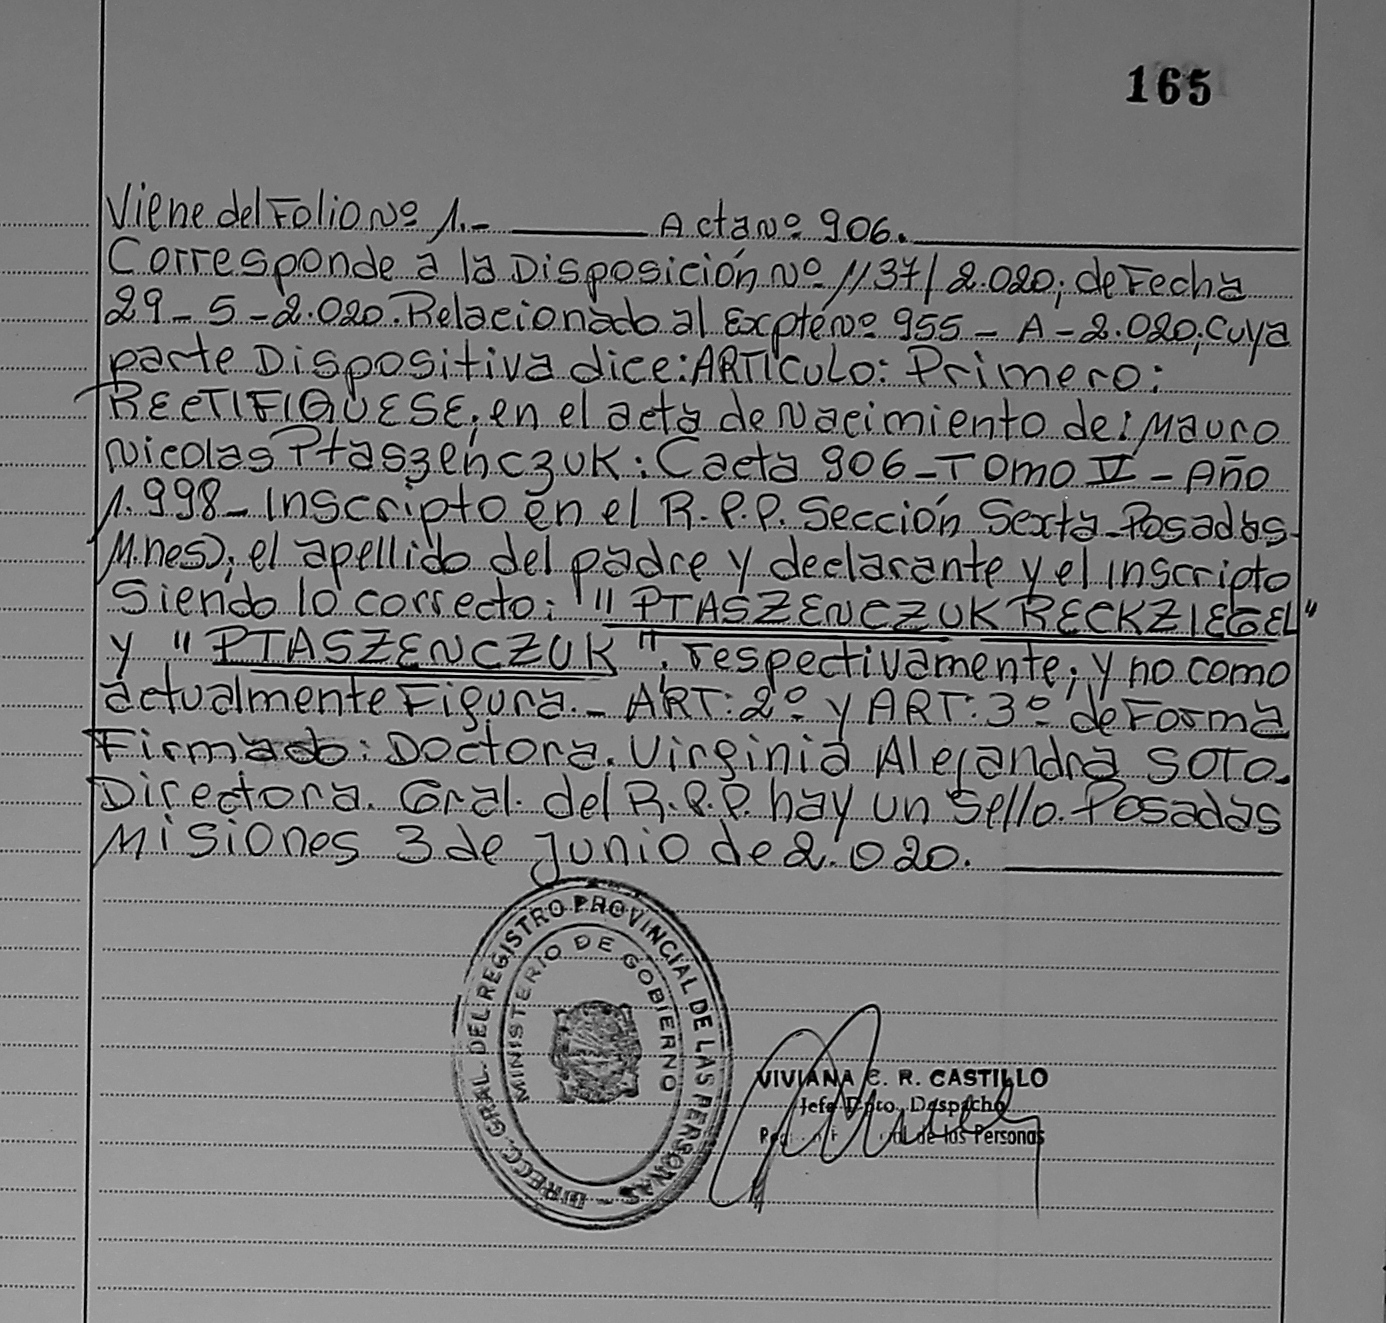 165
Viene del Folio Nº 1.- Acta Nº 906.
Corresponde a la Disposición Nº 1137/2.020; de Fecha
29-5-2.020. Relacionado al Expte Nº 955-A-2.020; cuya
parte Dispositiva dice: ARTICULO: Primero:
RECTIFIQUESE; en el acta de Nacimiento de: Mauro
Nicolas Ptaszenczuk: (acta 906-Tomo IV-Año
1.998-Inscripto en el R.P.P. Sección Sexta-Posadas-
Mnes); el apellido del padre y declarante y el inscripto
Siendo lo correcto: "PTASZENCZUK RECKZIEGEL"
y "PTASZENCZUK". respectivamente; y no como
actualmente Figura.- ART: 2º y ART: 3º de Forma
Firmado: Doctora. Virginia Alejandra SOTO.
Directora. Gral. del R.P.P. hay un Sello. Posadas
Misiones 3 de Junio de 2.020.
DIRECC. GRAL. DEL REGISTRO PROVINCIAL DE LAS PERSONAS -
MINISTERIO DE GOBIERNO
VIVIANA C. R. CASTILLO
Jefe Dpto. Despacho
de las Personas